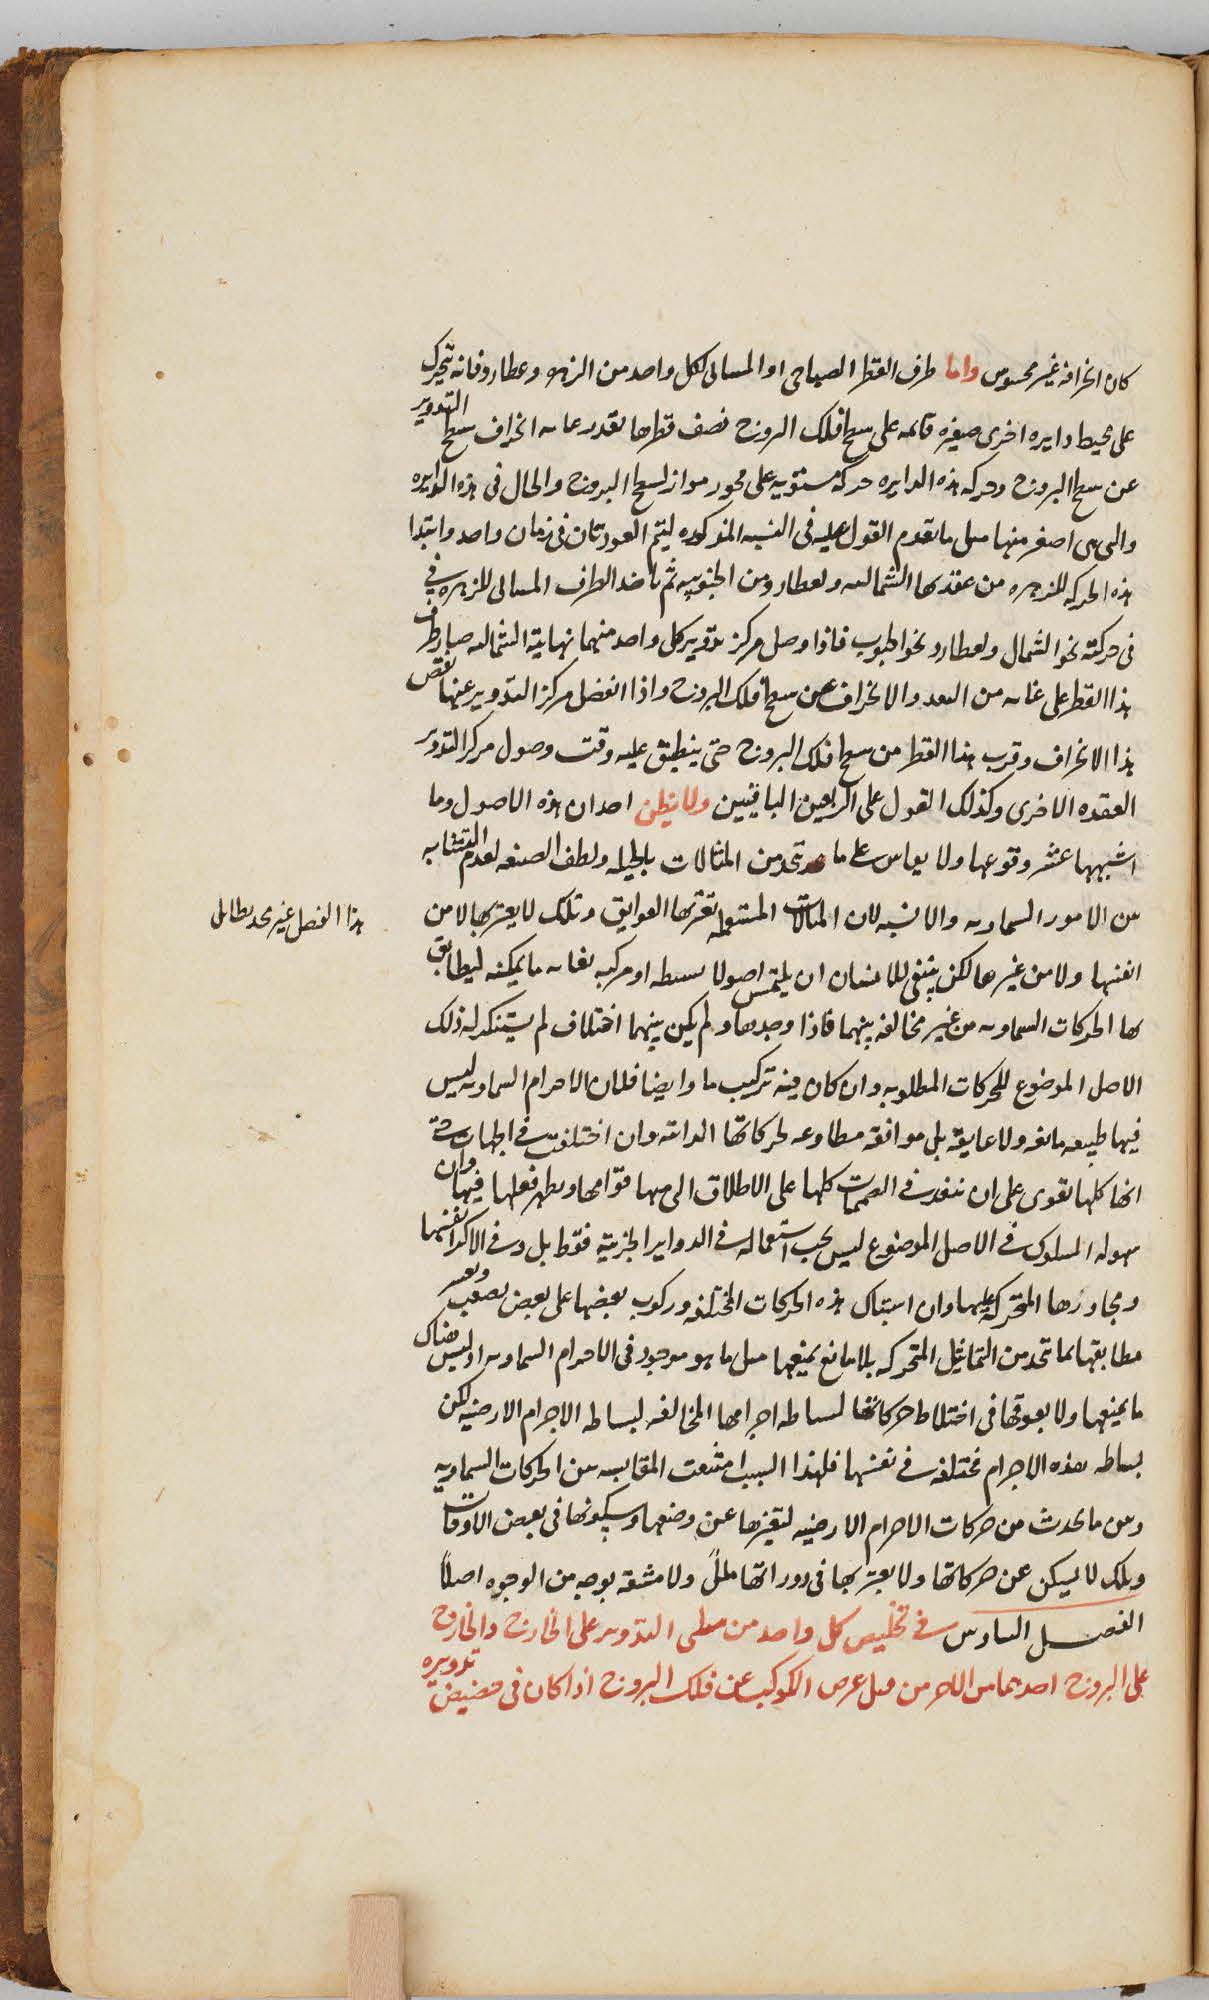 كان انحرافه غير محسوس واما طرف القطر الصباحى او المسائى لكل واحد من الزهره وعطارد فانه يتحرك
على محيط دايره اخرى صغيره قائمه على سطح فلك البروج نصف قطرها بقدر غايه انحراف سطح التدوير
عن سطح البروج وحركه هذه الدايره حركه مستويه على محور مواز لسطح البروج والحال فى هذه الدايره
والتى هى اصغر منها مثل ما تقدم القول عليه فى النسبه المذكوره ليتم العودتان فى زمان واحد وابتدا
هذه الحركه للزهره من عقدتها الشماليه ولعطارد من الجنوبيه ثم ياخذ الطرف المسائى للزهره فى
فى حركته نحو الشمال ولعطارد نحو الجنوب فاذا وصل مركز تدوير كل واحد منهما نهايته الشماليه صار طرف
هذا القطر على غايه من البعد والانحراف عن سطح فلك البروج واذا انفصل مركز التدوير عنها نقص
هذا الانحراف وقرب هذا القطر من سطح فلك البروج حتى ينطبق عليه وقت وصول مركز التدوير
العقده الاخرى وكذلك القول على الربعين الباقيين ولا يظن احد ان هذه الاصول وما
اشبهها عسر وقوعها ولا يقاس على ما يتخذ من المثالات بالحيله ولطف الصنعه لعدم التشابه
من الامور السماويه والانسيه لان المثالات المستعمله تعتريها العوايق وتلك لا يعتريها لا من
انفسها ولا من غيرها لكن ينبغى للانسان ان يلتمس اصولا بسيطه او مركبه بغايه ما يمكنه ليطابق
بها الحركات السماويه من غير مخالفه بينهما فاذا وجدها ولم يكن بينهما اختلاف لم يستنكر له ذلك
الاصل الموضوع للحركات المطلوبه وان كان فيه تركيب ما وايضا فلان الاجرام السماويه ليس
فيها طبيعه مانعه ولا عايقه بل موافقه مطاوعه لحركاتها الذاتيه وان اختلفت فى الجهات حتى
انها كلها تقوى على ان تنفذ فى كلها على الاطلاق التى بها قوامها ويظهر فعلها فيها وان
سهوله السلوك فى الاصل الموضوع ليس يجب استعماله فى الدواير الجزئيه فقط بل وفى الاكر انفسها
ومجاورها المتحركه عليها وان اشتباك هذه الحركات المختلفه وركوب بعضها على بعض يصعب ويعسر
مطابقتها بما تتخذ من التماثيل المتحركه بلا مانع يمنعها مثل ما هو موجود فى الاجرام السماويه اذ ليس هناك
ما يمنعها ولا يعوقها فى اختلاط حركاتها لبساطه اجرامها المخالفه لبساطه الاجرام الارضيه لكن
بساطه هذه الاجرام مختلفه فى نفسها فلهذا السبب امتنعت المقايسه بين الحركات السماويه
وبين ما يحدث من حركات الاجرام الارضيه لتغيرها عن وضعها وسكونها فى بعض الاوقات
وتلك لا تسكن عن حركاتها ولا يعتريها فى دورانها ملل ولا مشقه بوجه من الوجوه اصلاً
الفصل السادس فى تخليص كل واحد من ميلى التدوير على الخارج والخارج
على البروج احدهما من الاخر من قبل عرض الكوكب عن فلك البروج اذا كان فى حضيض تدويره
هذا الفصل غير مجد بطائل